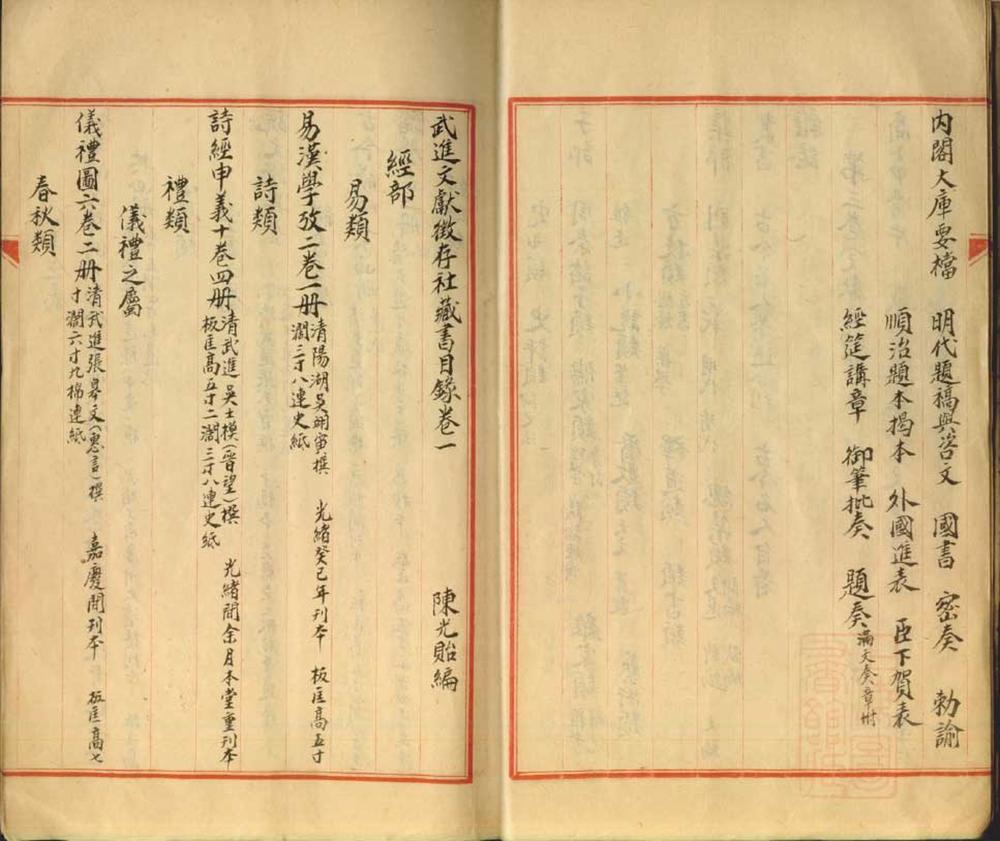 内閣大庫要檔 明代題稿與咨文 國書 密奏 勅諭
順治題本揭本 外國進表 臣下賀表
經筵講章 御筆批奏 題奏滿文奏章附
武進文獻徵存社藏書目錄卷一 陳光貽編
經部
易類
易漢學攷二卷一册清陽湖吳翊寅撰 光緒癸巳年刊本 板匡高五寸濶三寸八連史紙
詩類
詩經申義十卷四册清武進吳士模(晉望)撰 光緒間余月本堂重刊本 板匡高五寸二濶三寸八連史紙
禮類
儀禮之屬
儀禮圖六卷二册清武進張皋文(惠言)撰 嘉慶間刊本 板匡高七寸濶六寸九棉連紙
春秋類